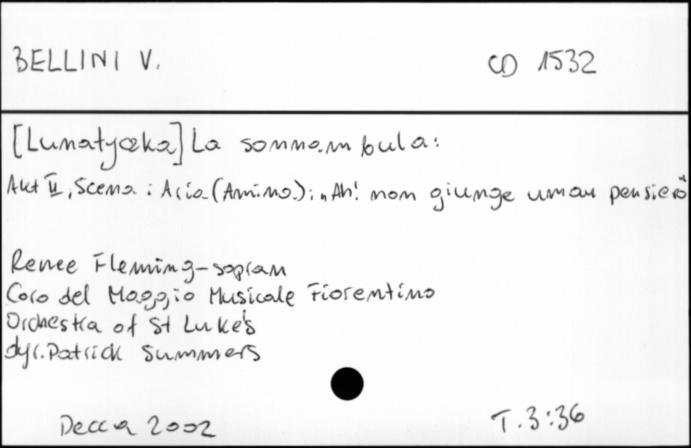 BELLINI V. CD 1532
[Lunatyczka] La sonnambula:
Akt II, Scena i Aria (Amina): „Ah! non giunge uman pensiero"
Renee Fleming - sopran
Coro del Maggio Musicale Fiorentino
Orchestra of St Luke's
dyr. Patrick Summers
Decca 2002 T. 3:36